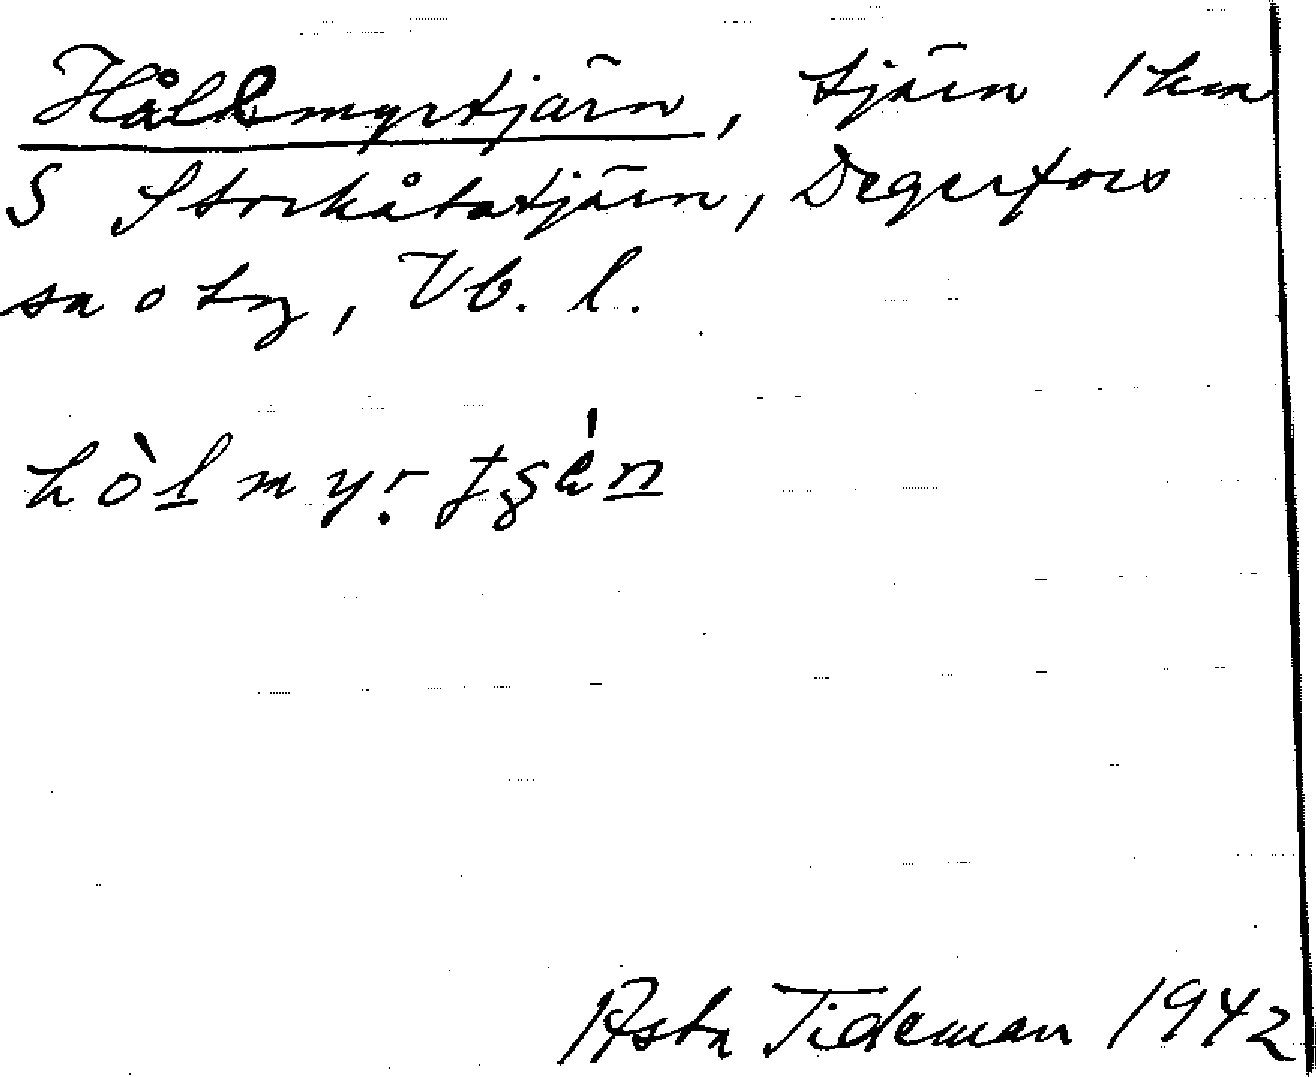 Hålbmyrtjärn, tjärn 1 km
S Storkåtatjärn, Degerfors
sn o tg, Vb. l.
Asta Tideman 1942